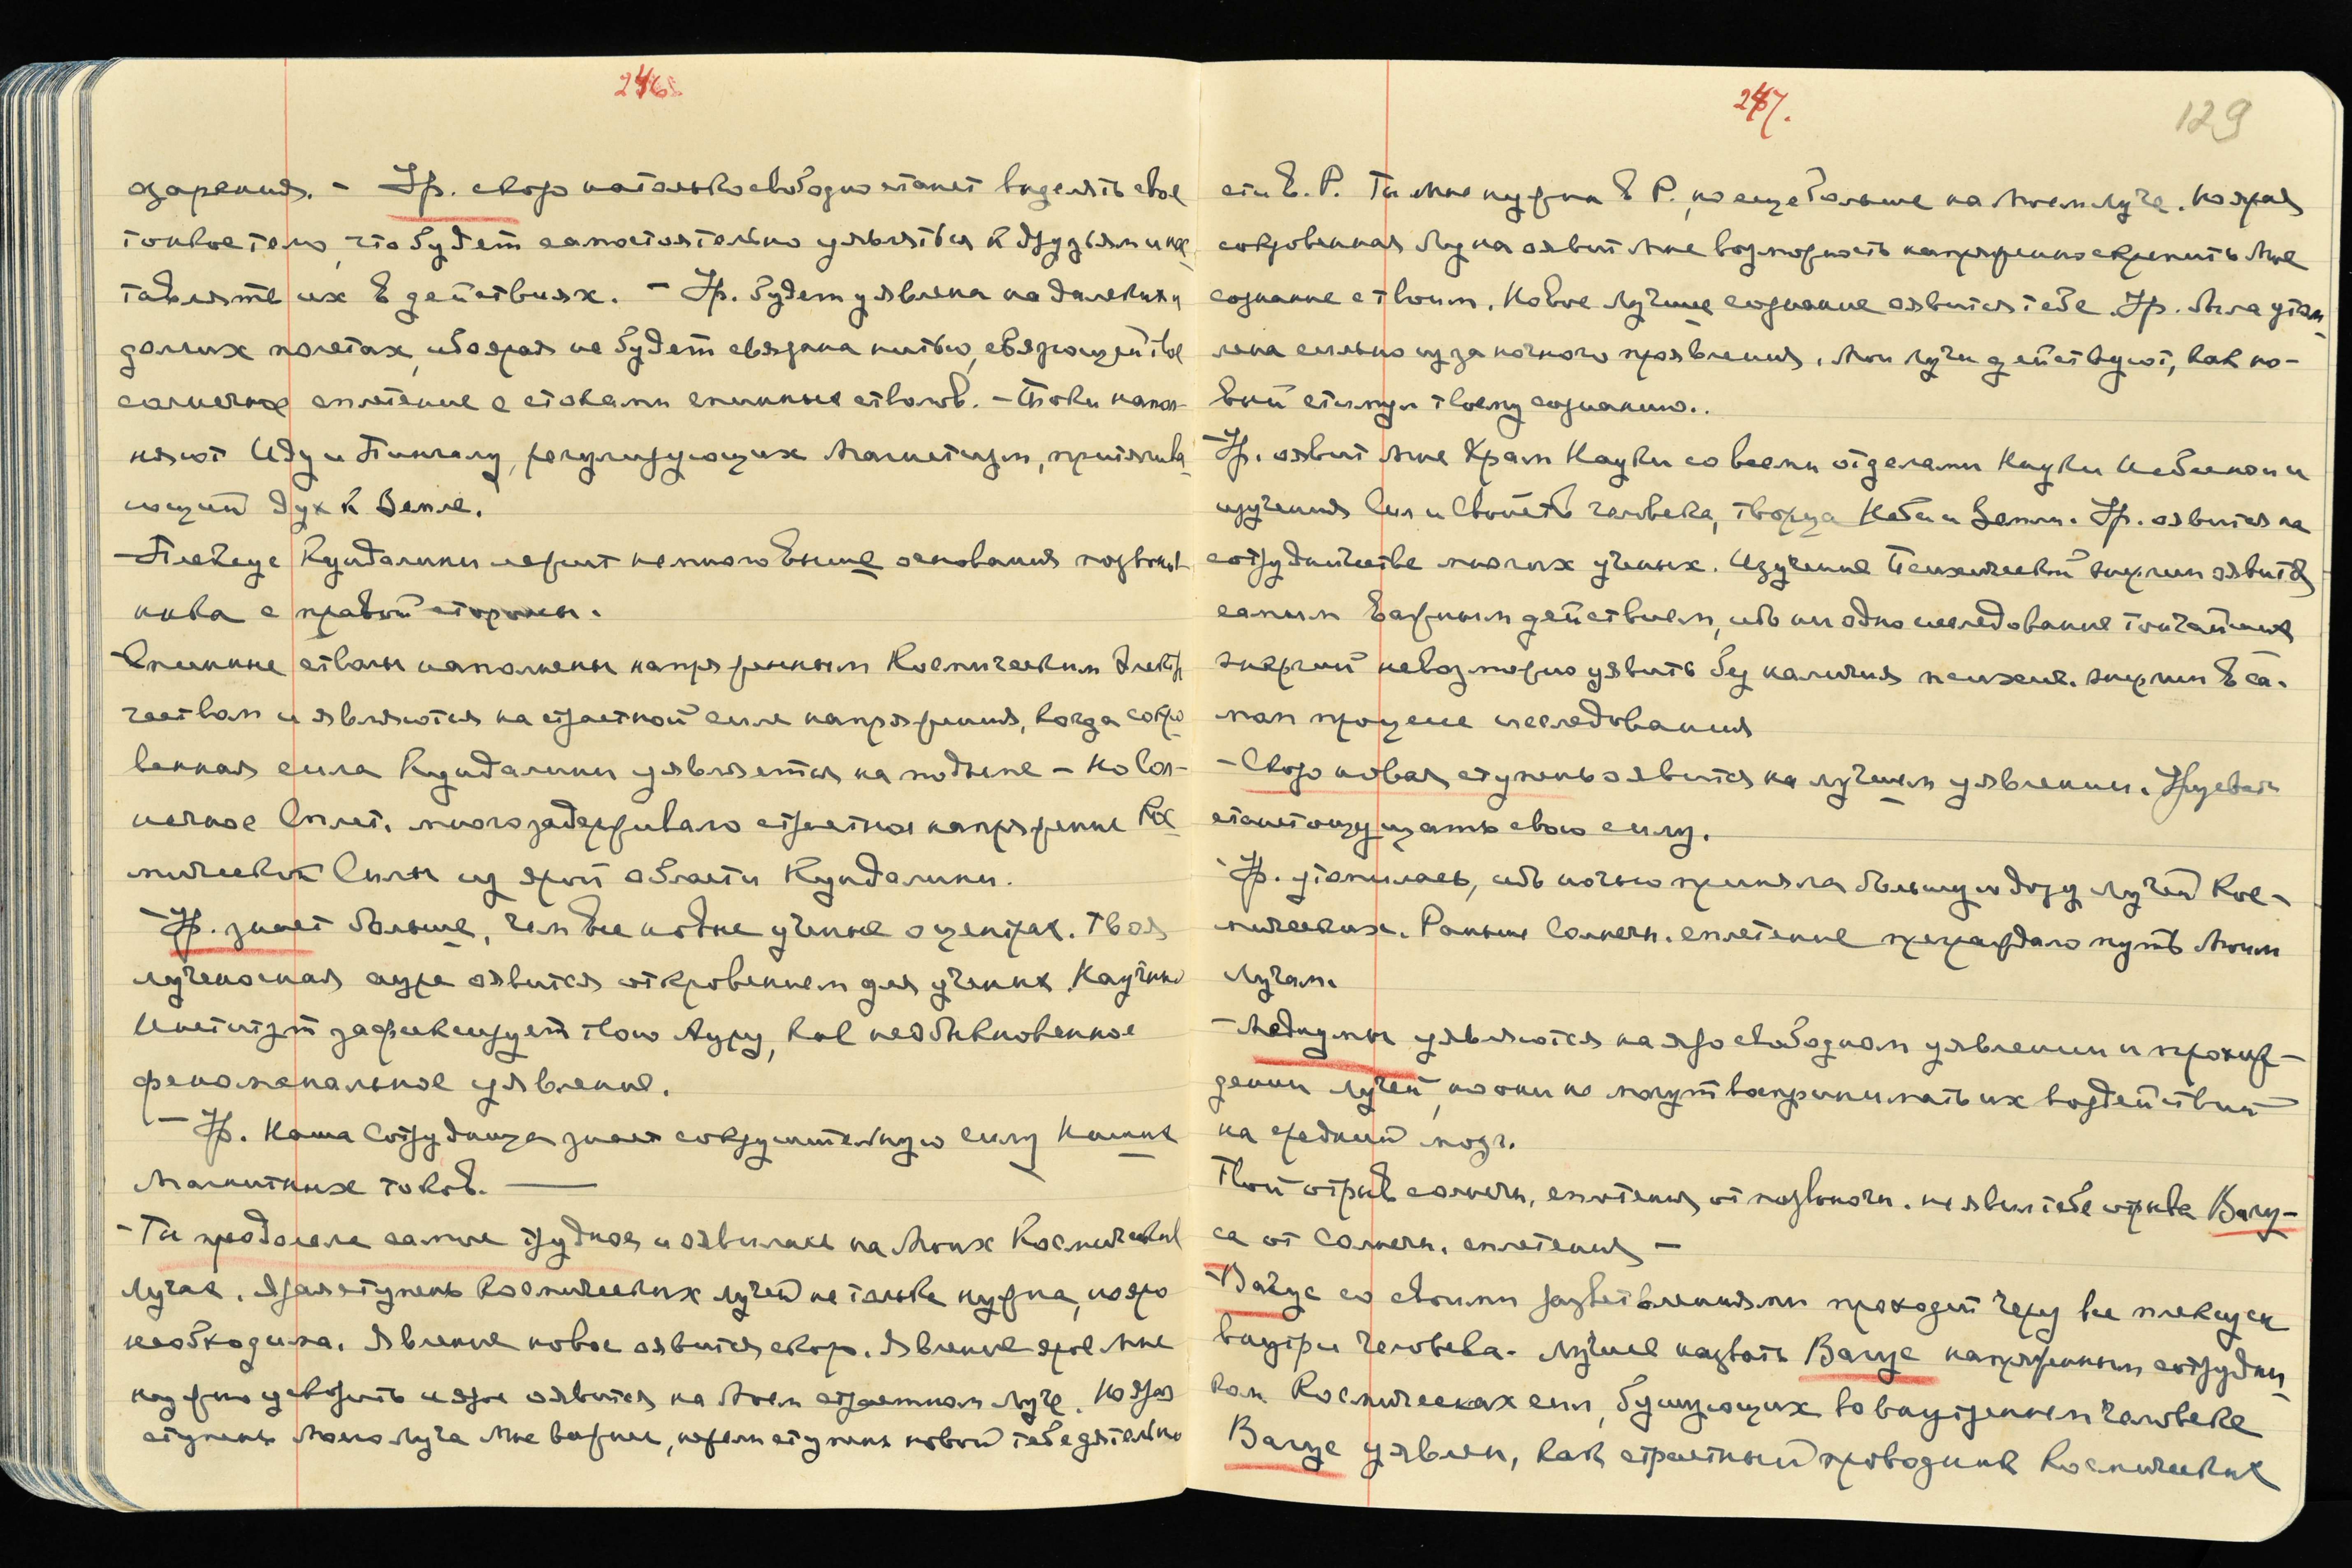 246
озарения. - Ур. скоро настолько свободно станет выделять свое
тонкое тело, что будет самостоятельно уявляться к друзьям и нас-
тавлять их в действиях. - Ур. будет уявлена на далеких и
долгих полетах, ибо ярая не будет связана нитью, связующей твое
солнечное сплетение с стоками спинных стволов. - Токи напол-
няют Иду и Пингалу, регулирующих магнетизм, притягива-
ющий дух к Земле.
- Плексус Кундалини лежит немного выше основания позвоноч-
ника с правой стороны.
Спинные стволы наполнены напряженным Космическим Электри-
чеством и являются на страстной силе напряжения, когда сокро-
венная сила Кундалини уявляется на подъеме - Но Сол-
нечное Сплет. много задерживало страстное напряжение Кос-
мической Силы из ярой области Кундалини.
- Ур. знает больше, чем все новые ученые о центрах. Твоя
лученосная аура явится откровением для ученых. Научный
Институт зафиксирует твою Ауру, как необыкновенное
феноменальное уявление.
- Ур. Наша Сотрудница знает сокрушительную силу Наших
Магнитных токов. —
- Ты преодолела самое трудное и оявилась на Моих Космических
Лучах. Ярая ступень космических лучей не только нужна, но яро
необходима. Явление новое оявится скоро. Явление ярое Мне
нужно ускорить и ярое оявится на Моем страстном Луче. Но ярая
ступень Моего Луча Мне важнее, нежели ступень новой тебе деятельно-
247.
129
сти в. Р. Ты Мне нужна в Р., но еще больше на Моем Луче. Но ярая
сокровенная Луна оявит Мне возможность напряженно скрепить Мое
сознание с твоим. Новое лучшее сознание оявится тебе. Ур. была утом-
лена сильно из за ночного проявления. Мои лучи действуют, как но-
вый стимул твоему сознанию..
- Ур. оявит Мне Храм Науки со всеми отделами Науки Небесной и
изучения Сил и Свойств человека, творца Неба и Земли. Ур. оявится на
сотрудничестве многих ученых. Изучение Психической энергии оявится
самым важным действием, ибо ни одно исследование тончайших
энергий невозможно уявить без наличия психич. энергии в са-
мом процессе исследования
- Скоро новая ступень оявится на лучшем уявлении. Урусвати
станет ощущать свою силу.
- Ур. утомилась, ибо ночью приняла большую дозу лучей Кос-
мических. Раньше Солнечн. сплетение преграждало путь Моим
Лучам.
- Медиумы уявляются на яро свободном уявлении и прохож-
дении лучей, но они не могут воспринимать их воздействий
на средний мозг.
Твой отрыв солнечн. сплетения от позвоночн. не явил тебе отрыва Вагу-
са от Солнечн. сплетения -
- Вагус со своими разветвлениями проходит через все плексусы
внутри человека. Лучше назвать Вагус напряженным сотрудни-
ком Космических сил, бушующих во внутреннем человеке
Вагус уявлен, как страстный проводник Космических